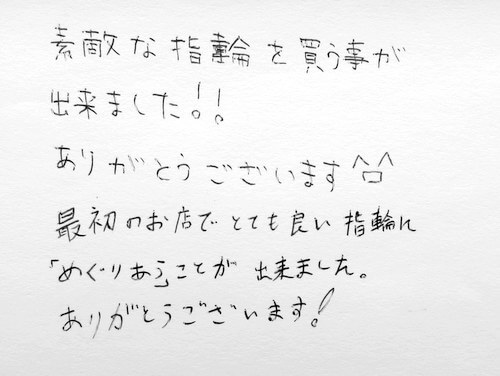 素敵な指輪を買う事が
出来ました!!
ありがとうございます^ロ^
最初のお店でとても良い指輪に
「めぐりあう」ことが出来ました。
ありがとうございます!